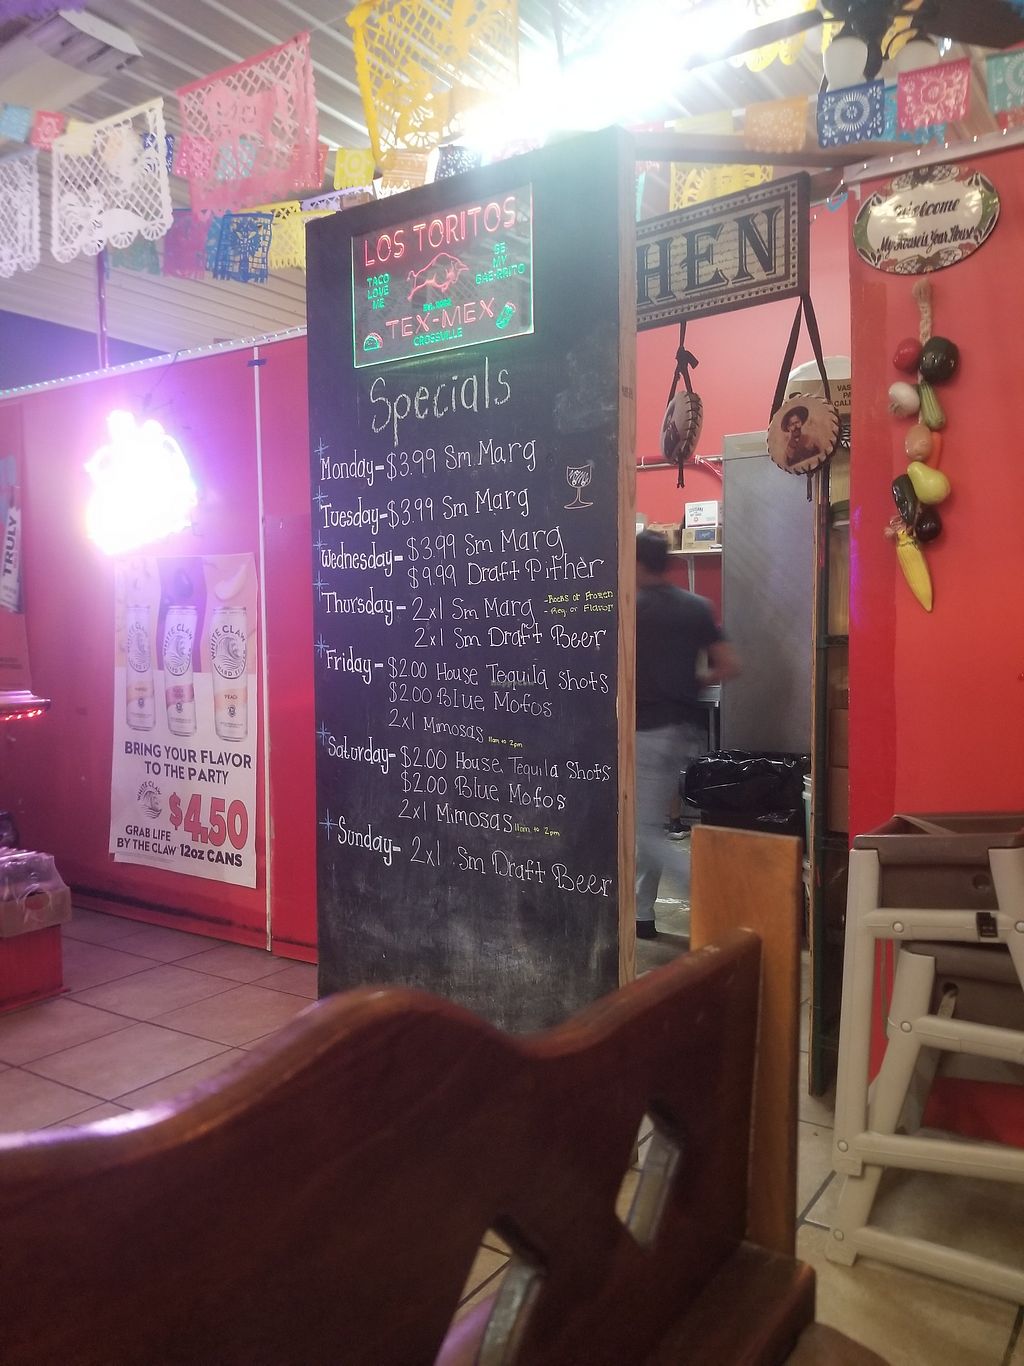 LOS TORITOS
TACO LOVE ME
BE MY BAE-RRITO
TEX-MEX
CROSSVILLE
Specials
Monday-$3.99 Sm Marg
Tuesday-$3.99 Sm Marg
Wednesday- $3.99 Sm Marg
$9.99 Draft Pither
Thursday- 2x1 Sm Marg
-Rocks or Frozen
-Reg or Flavor
2x1 Sm Draft Beer
Friday-$2.00 House Tequila Shots
$2.00 Blue Mofos
2x1 Mimosas 11am to 2pm
Saturday-$2.00 House Tequila Shots
$2.00 Blue Mofos
2x1 Mimosas 11am to 2pm
Sunday- 2x1 Sm Draft Beer
HEN
Welcome
My House is Your House
TRULY
WHITE CLAW
WHITE CLAW
WHITE CLAW
HARD SELTZER
PEACH
BRING YOUR FLAVOR
TO THE PARTY
WHITE CLAW
$4.50
GRAB LIFE
BY THE CLAW
12oz CANS